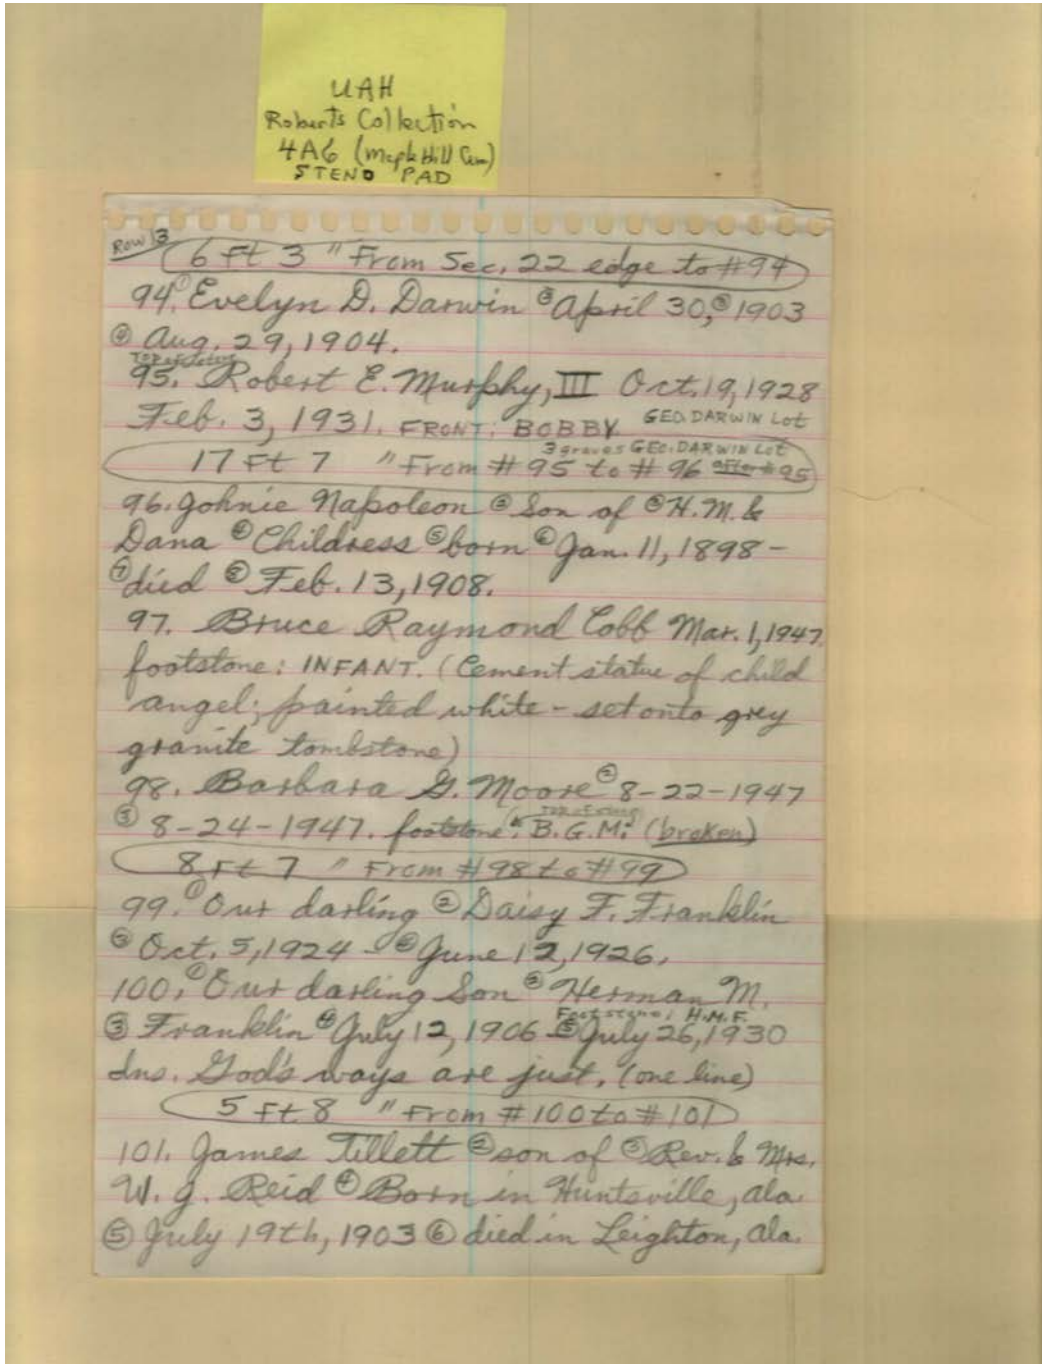 UAH
Roberts Collection
4A6 (Maple Hill Cem)
STENO PAD
Row 13
6 Ft 3 " From Sec. 22 edge to #94
94. ① Evelyn D. Darwin ② April 30, ③ 1903
④ Aug. 29, 1904.
Top of stone
95. Robert E. Murphy, III Oct. 19, 1928
Feb. 3, 1931. FRONT: BOBBY GEO. DARWIN Lot
3 graves GEO. DARWIN Lot
17 Ft 7 " From # 95 to # 96 after # 95
96. Johnie Napoleon ② Son of ③ H. M. &
Dana ④ Childress ⑤ born ⑥ Jan. 11, 1898 -
⑦ died ⑧ Feb. 13, 1908.
97. Bruce Raymond Cobb Mar. 1, 1947.
footstone: INFANT. (Cement statue of child
angel; painted white - set onto grey
granite tombstone)
98. Barbara G. Moore ② 8-22-1947
top of stone
③ 8-24-1947. footstone: B.G.M. (broken)
8 Ft 7 " From #98 to #99
99. ① Our darling ② Daisy F. Franklin
③ Oct. 5, 1924 - ④ June 12, 1926.
100. ① Our darling Son ② Herman M.
Footstone: H.M.F.
③ Franklin ④ July 12, 1906 - ⑤ July 26, 1930
Ins. God's ways are just. (one line)
5 Ft 8 " From #100 to #101
101. James Tillett ② son of ③ Rev. & Mrs.
W. J. Reid ④ Born in Huntsville, Ala.
⑤ July 19th, 1903 ⑥ died in Leighton, Ala.